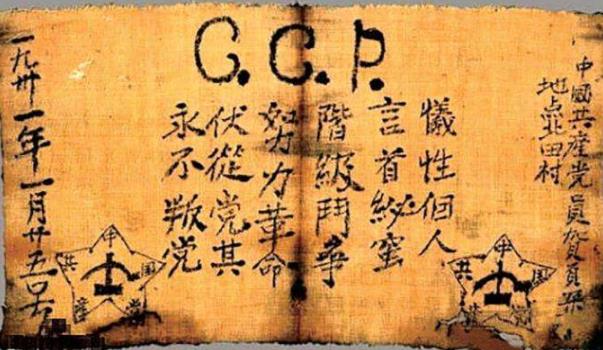 C.C.P.
中國共産党員賀頁朶
地点北田村
犧性個人
言首秘蜜
階級鬥争
努力革命
伏從党其
永不叛党
一九卅一年一月廿五日
中国共産党
中国共産党